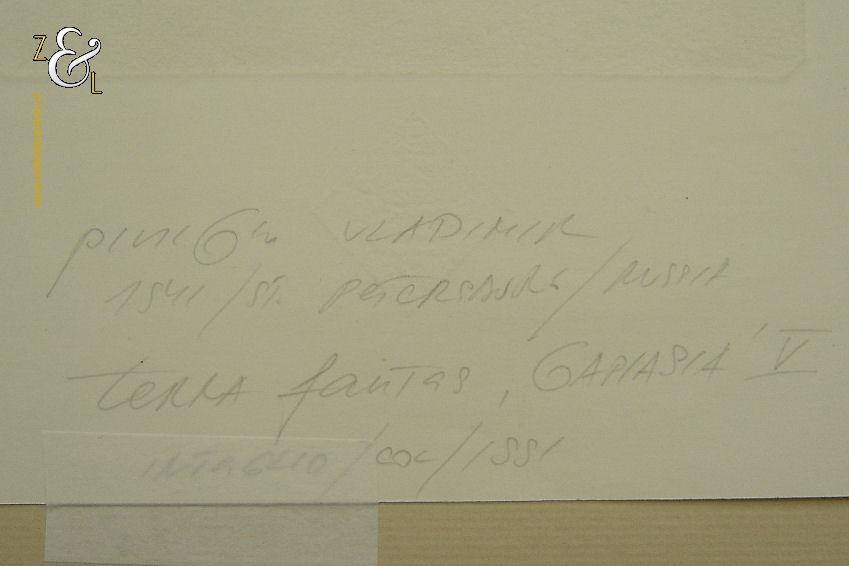 Z & L
PINIGIN VLADIMIR
1941 / ST. PETERSBURG / RUSSIA
TERRA fantas, GAPIASIA' V
INTAGLIO / COL / 1991